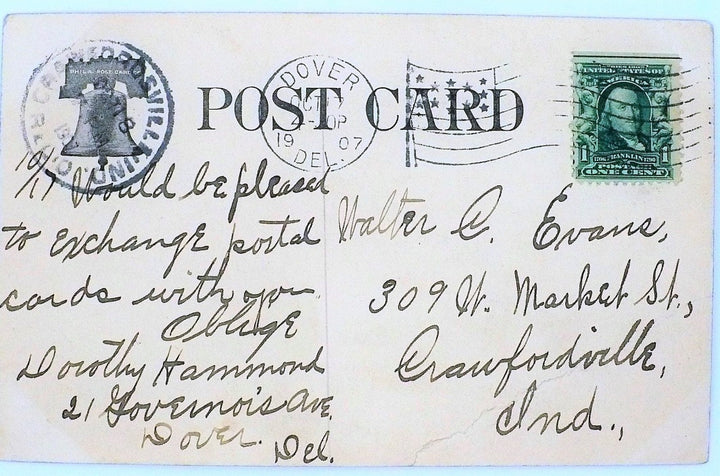 POST CARD
PHILA. POST CARD
CRAWFORDSVILLE
IND.
REC'D.
DOVER
OCT 7
19 07
DEL.
UNITED STATES OF AMERICA
1 FRANKLIN 1
POSTAGE
ONE CENT
Would be pleased
to exchange postal
cards with you.
Oblige
Dorothy Hammond
21 Governor's Ave.
Dover. Del.
Walter C. Evans,
309 W. Market St.,
Crawfordville,
Ind.,